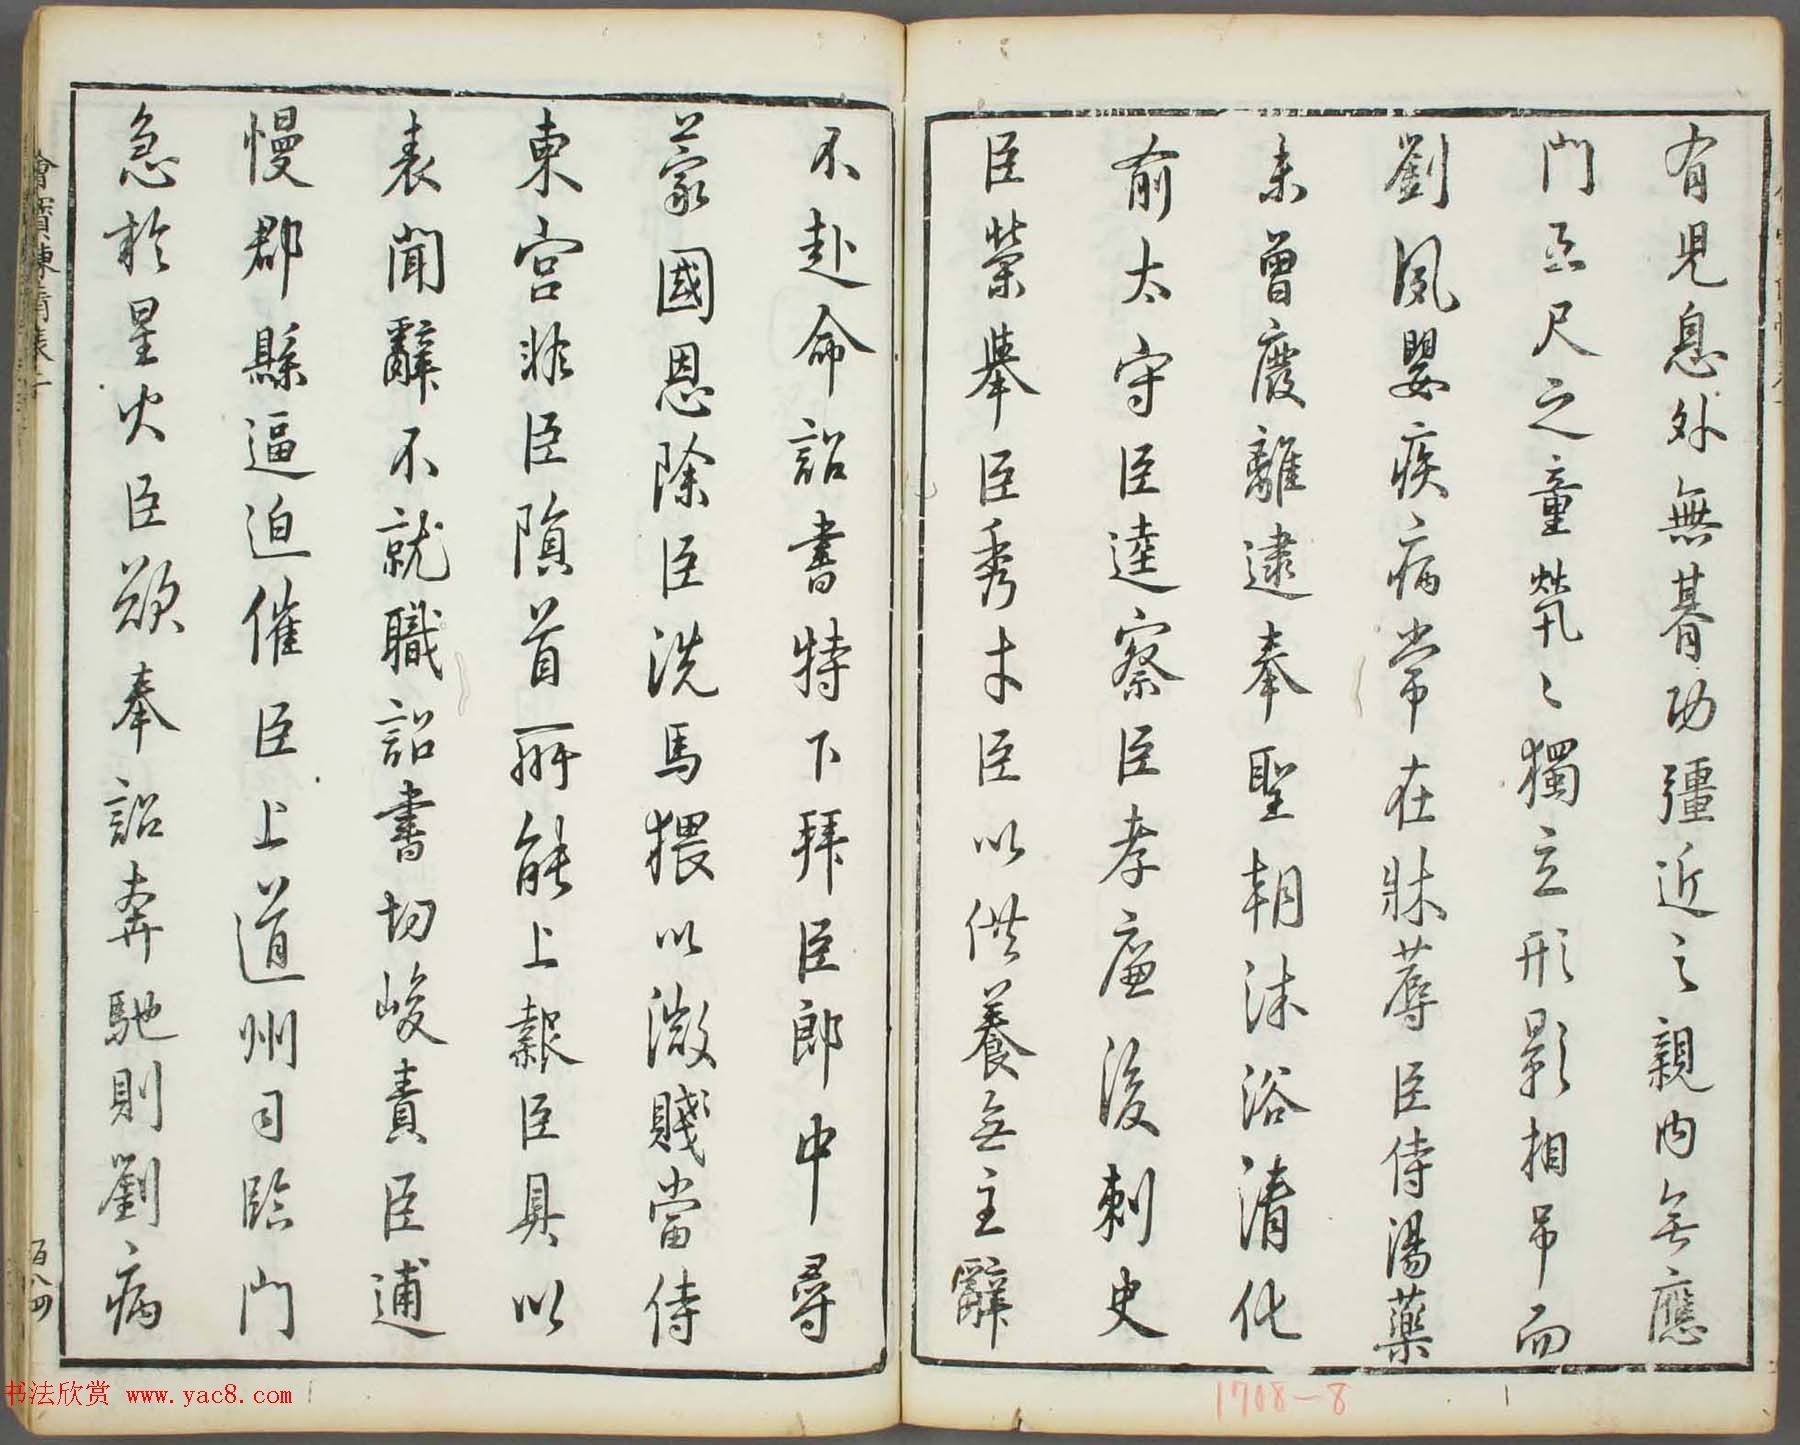 有兒息外無朞功彊近之親內無應
門五尺之童煢〻獨立形影相吊而
劉夙嬰疾病常在牀蓐臣侍湯藥
未曾廢離逮奉聖朝沐浴清化
前太守臣逵察臣孝廉後刺史
臣榮舉臣秀才臣以供養無主辭
不赴命詔書特下拜臣郎中尋
蒙國恩除臣洗馬猥以微賤當侍
東宮非臣隕首所能上報臣具以
表聞辭不就職詔書切峻責臣逋
慢郡縣逼迫催臣上道州司臨門
急於星火臣欲奉詔奔馳則劉病
陳情表
百八四
1708-8
书法欣赏 www.yac8.com